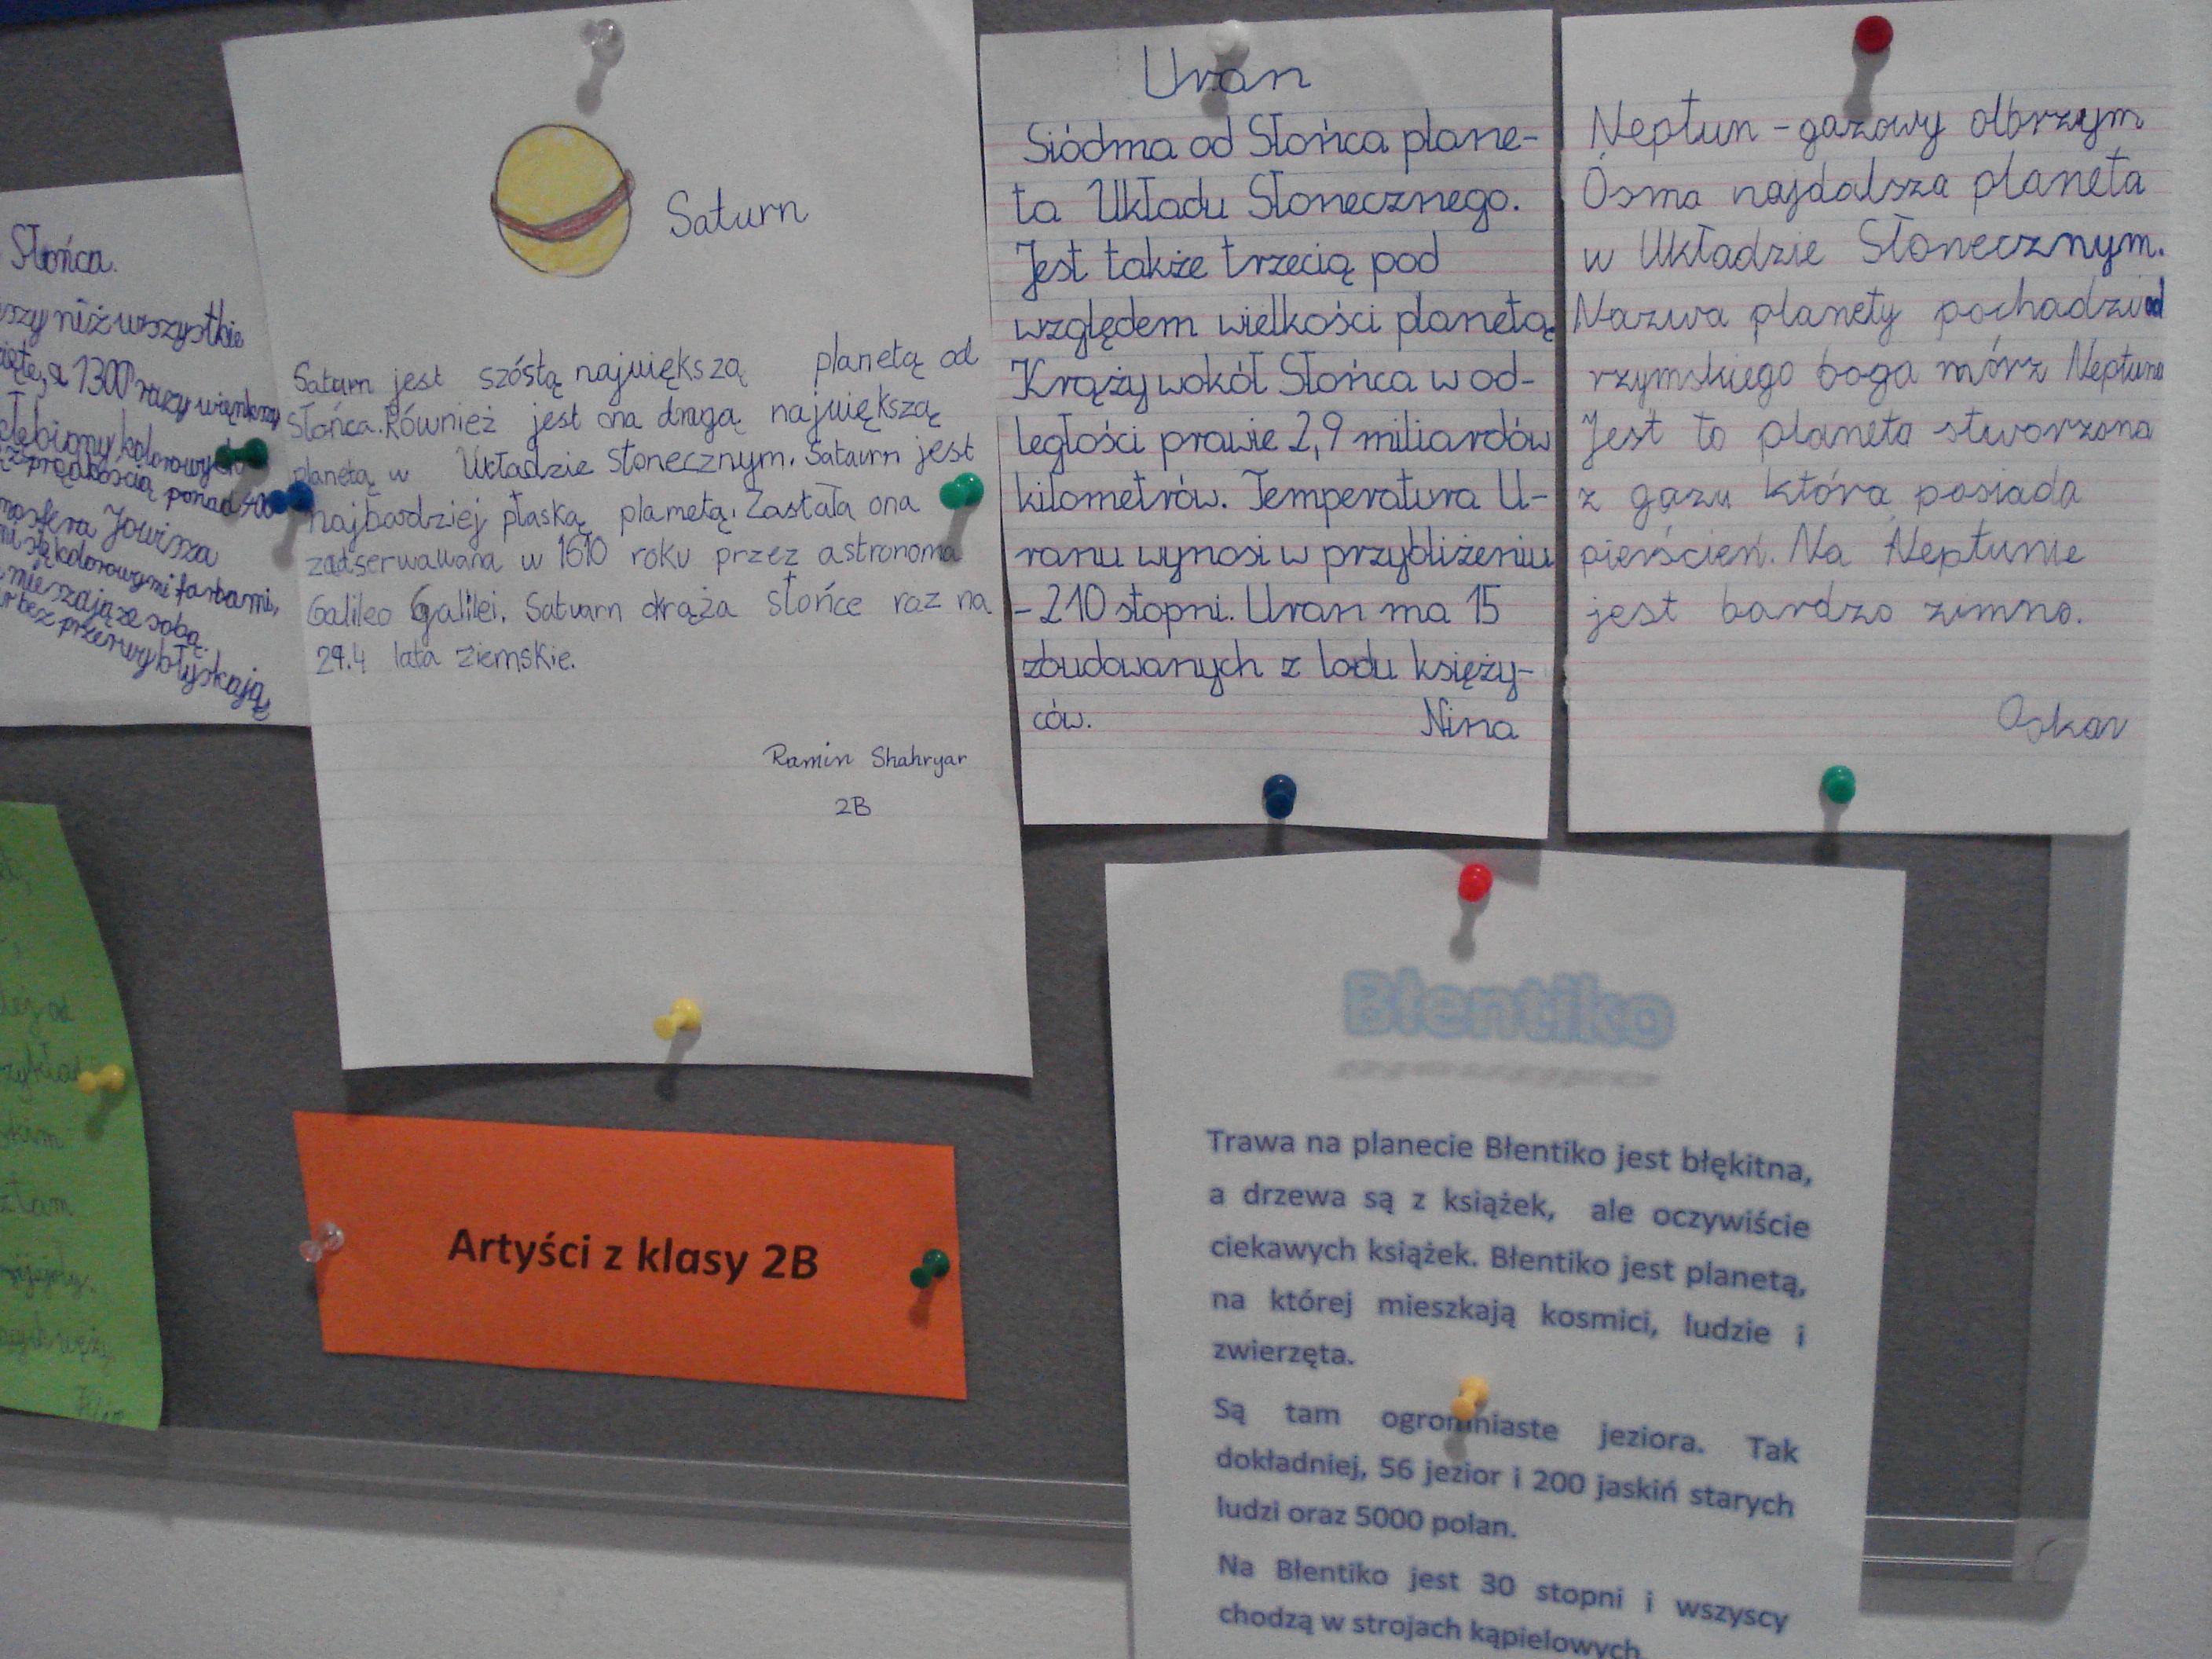 Słońca.
niż wszystkie
1300 razy większy
kolorowych
prędkością ponad 400
Jowisza
kolorowymi farbami,
mieszają ze sobą.
bez przerwy błyskają
Saturn
Saturn jest szóstą największą planetą od
Słońca. Również jest ona drugą największą
planetą w Układzie słonecznym. Sataurn jest
najbardziej płaską planetą. Zastała ona
w 1610 roku przez astronoma
Galileo Galilei. Satuarn okrąża słońce raz na
29.4 lata ziemskie.
Ramin Shahryar
2B
Uran
Siódma od Słońca plane-
ta Układu Słonecznego.
Jest także trzecią pod
względem wielkości planetą.
Krąży wokół Słońca w od-
ległości prawie 2,9 miliardów
kilometrów. Temperatura U-
ranu wynosi w przybliżeniu
-210 stopni. Uran ma 15
zbudowanych z lodu księży-
ców.
Nina
Neptun - gazowy olbrzym
Ósma najdalsza planeta
w Układzie Słonecznym.
Nazwa planety pochadzi od
rzymskiego boga mórz Neptuna
Jest to planeta stworzona
z gazu która posiada
pierścień. Na Neptunie
jest bardzo zimno.
Oskar
Artyści z klasy 2B
Błentiko
Trawa na planecie Błentiko jest błękitna,
a drzewa są z książek, ale oczywiście
ciekawych książek. Błentiko jest planetą,
na której mieszkają kosmici, ludzie i
zwierzęta.
Są tam ogromniaste jeziora. Tak
dokładniej, 56 jezior i 200 jaskiń starych
ludzi oraz 5000 polan.
Na Błentiko jest 30 stopni i wszyscy
chodzą w strojach kąpielowych.